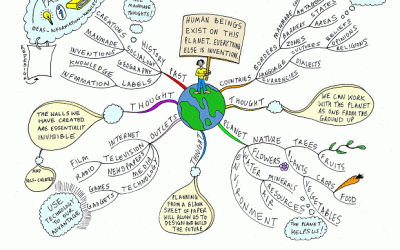 IDEAS - INFORMATION -
THOUGHTS!
HUMAN BEINGS
EXIST ON THIS
PLANET. EVERYTHING
ELSE IS INVENTION.
CREATIONS
MANMADE
INVENTIONS
KNOWLEDGE
INFORMATION
HISTORY
GEOGRAPHY
LABELS
PAST
COUNTRIES
BORDERS
ZONES
LANGUAGE
CURRENCIES
BARRIERS
CULTURES
DIALECTS
STATES
AREAS
BELIEFS
OPINIONS
RELIGIONS
THOUGHT
THOUGHT
THOUGHT
THE WALLS WE
HAVE CREATED
ARE ESSENTIALLY
INVISIBLE
AND
SELF-CREATED
WE CAN WORK
WITH THE PLANET
AS ONE FROM THE
GROUND UP
OUTLETS
INTERNET
TELEVISION
NEWSPAPERS
MEDIA
TECHNOLOGY
FILM
RADIO
GAMES
GADGETS
USE
TECHNOLOGY
TO OUR
ADVANTAGE
PLANNING
FROM A BLANK
SHEET OF PAPER
WILL ALLOW US TO
DESIGN AND BUILD
THE FUTURE
PLANET
NATURE
TREES
FRUITS
FLOWERS
PLANTS
CROPS
FOOD
VEGETABLES
WATER
MINERALS
AIR
RESOURCES
ENVIRONMENT
THE PLANET
HELPS US!